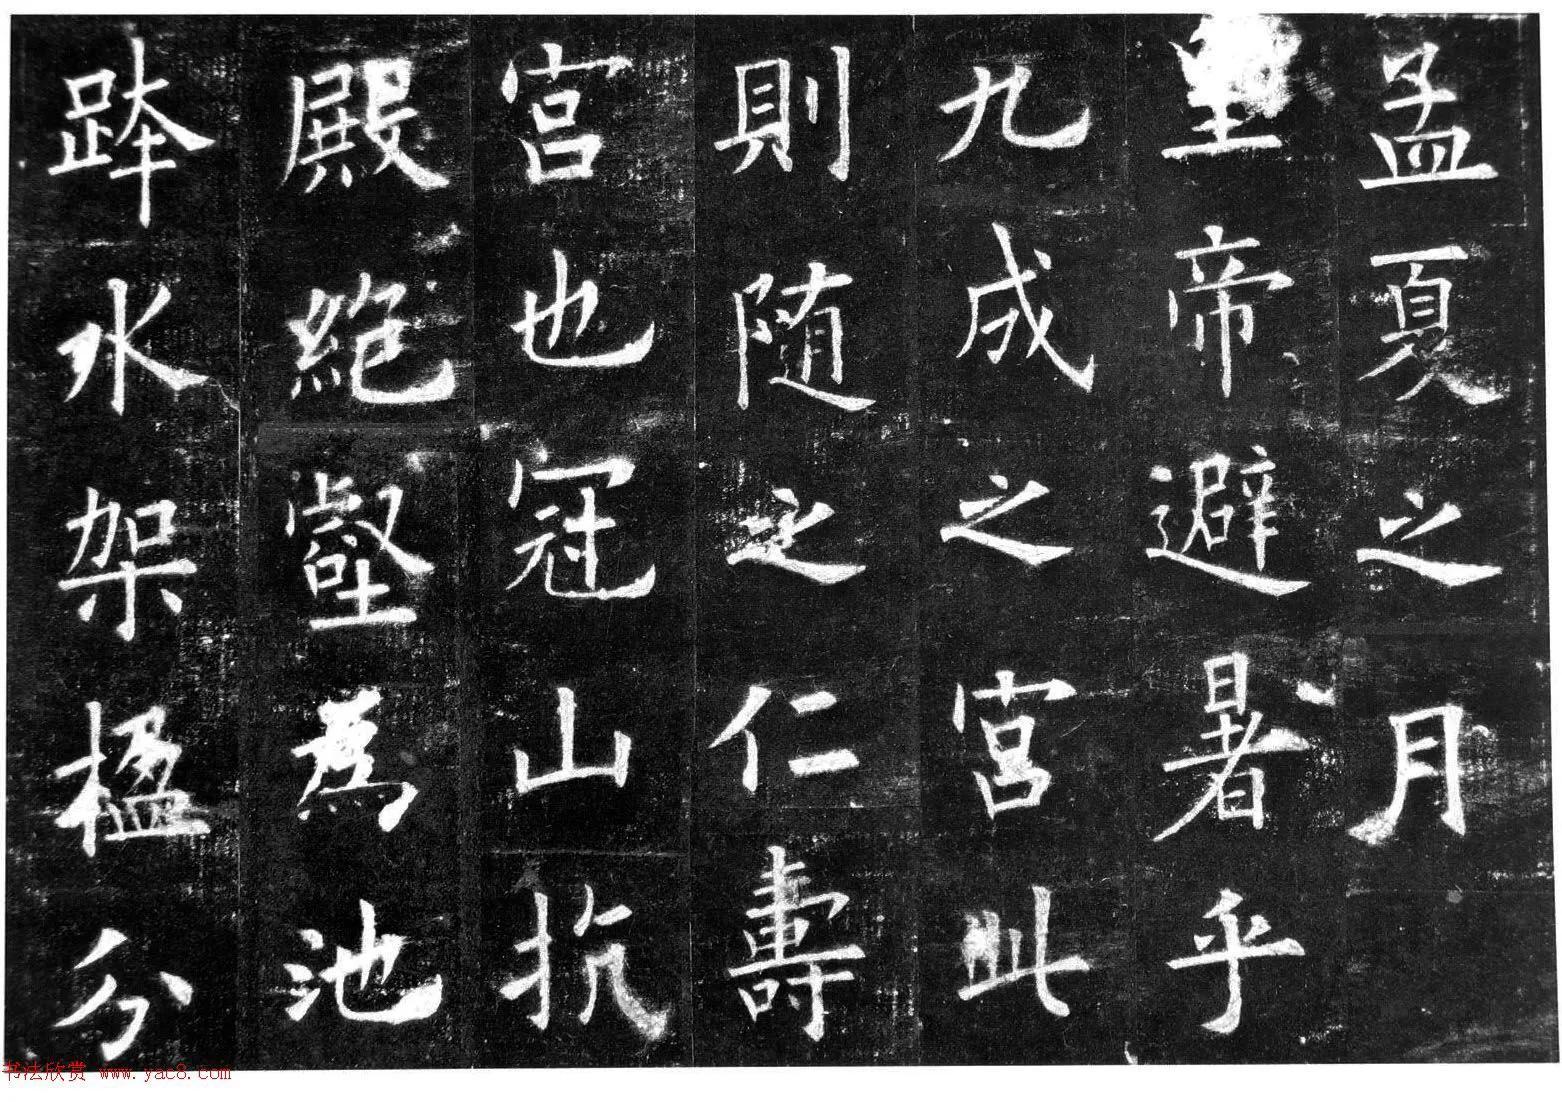 孟夏之月
皇帝避暑乎
九成之宮此
則随之仁壽
宮也冠山抗
殿絶壑為池
跨水架楹分
书法欣赏 www.yac8.com